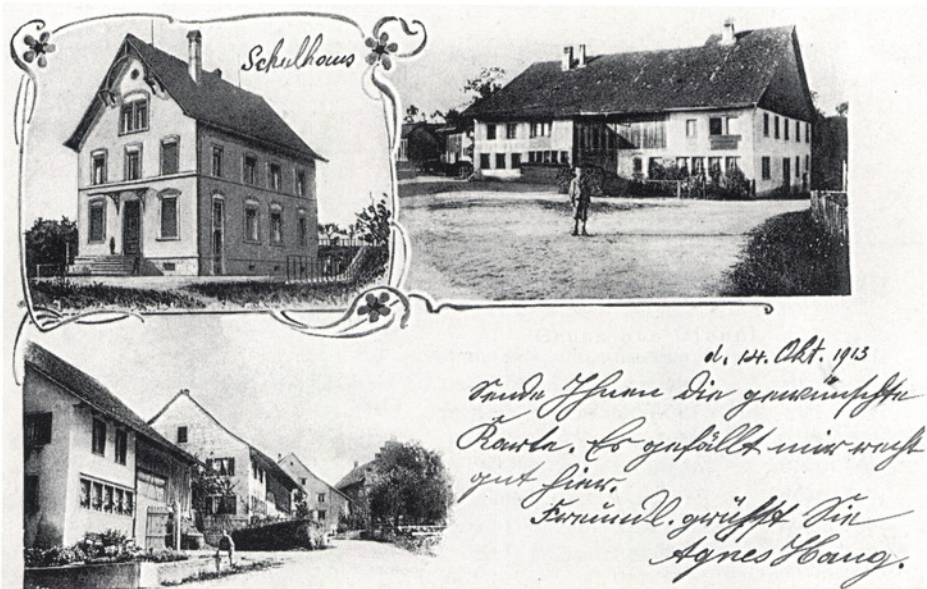 Schulhaus
d. 14. Okt. 1913
Sende Ihnen die gewünschte
Karte. Es gefällt mir recht
gut hier.
Freundl. grüsst Sie
Agnes Haug.